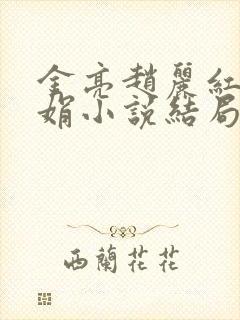 金亮趙麗紅
娟小說結局
西蘭花花